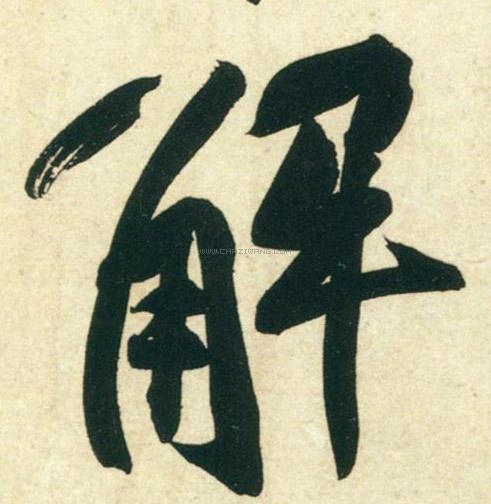 解
WWW.CHAZIWANG.COM